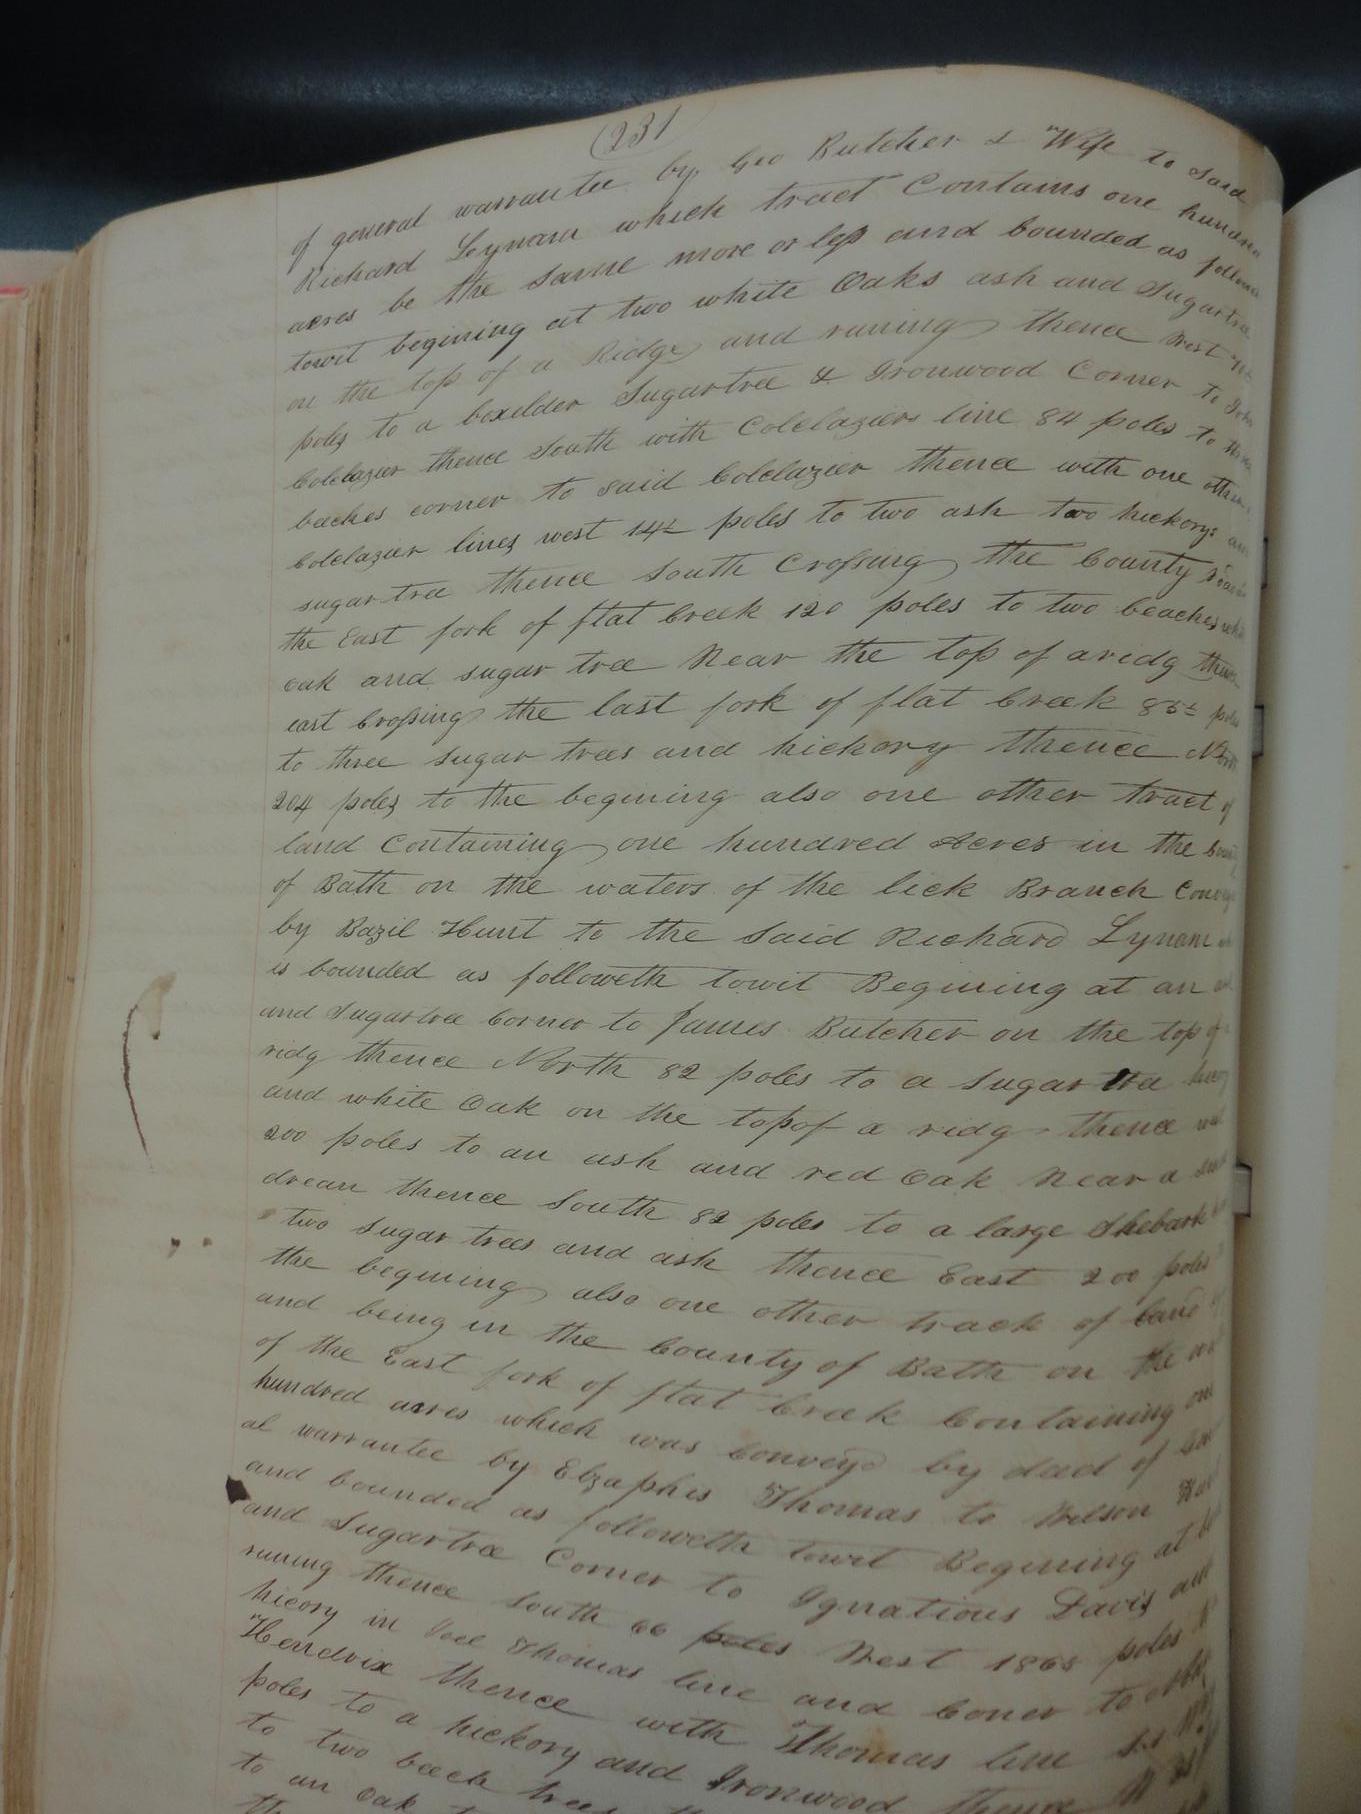 231
of general warrantee by Geo Butcher & Wife to said
Richard Lynam which tract Contains one hundred
acres be the same more or less and bounded as follows
towit begining at two white Oaks ash and Sugartree
on the top of a Ridge and runing thence West
poles to a boxelder Sugartree & Ironwood Corner to John
Colclazier thence South with Colclaziers line 84 poles to three
beeches corner to said Colclazier thence with one other
Colclazier lines west 14½ poles to two ash two hickorys and
sugar tree thence South Crossing the County road
the East fork of flat Creek 120 poles to two beaches white
oak and sugar tree Near the top of a ridg thence
east Crossing the last fork of flat Creek 85½ poles
to three sugar trees and hickory thence North
204 poles to the begining also one other tract of
land Containing one hundred Acres in the County
of Bath on the waters of the lick Branch Conveyd
by Bazil Hunt to the said Richard Lynam
is bounded as followeth towit Begining at an
and Sugartree Corner to James Butcher on the top of a
ridg thence North 82 poles to a Sugar tree
and white Oak on the top of a ridg thence west
200 poles to an ash and red Oak Near a
drean thence South 82 poles to a large Shebark
two Sugar trees and ash thence East 200 poles
the begining also one other track of land
and being in the County of Bath on the
of the East fork of flat Creek Containing one
hundred acres which was Conveyd by deed of
al warrantee by Elzaphis Thomas to Wilson
and bounded as followeth towit Begining at
and Sugartree Corner to Ignatious Davis and
runing thence South 66 poles West 186 poles
hicory in Thomas line and Coner to
Hendrix thence with Thomas line
poles to a hickory and Ironwood thence N
to two beech trees
to an Oak